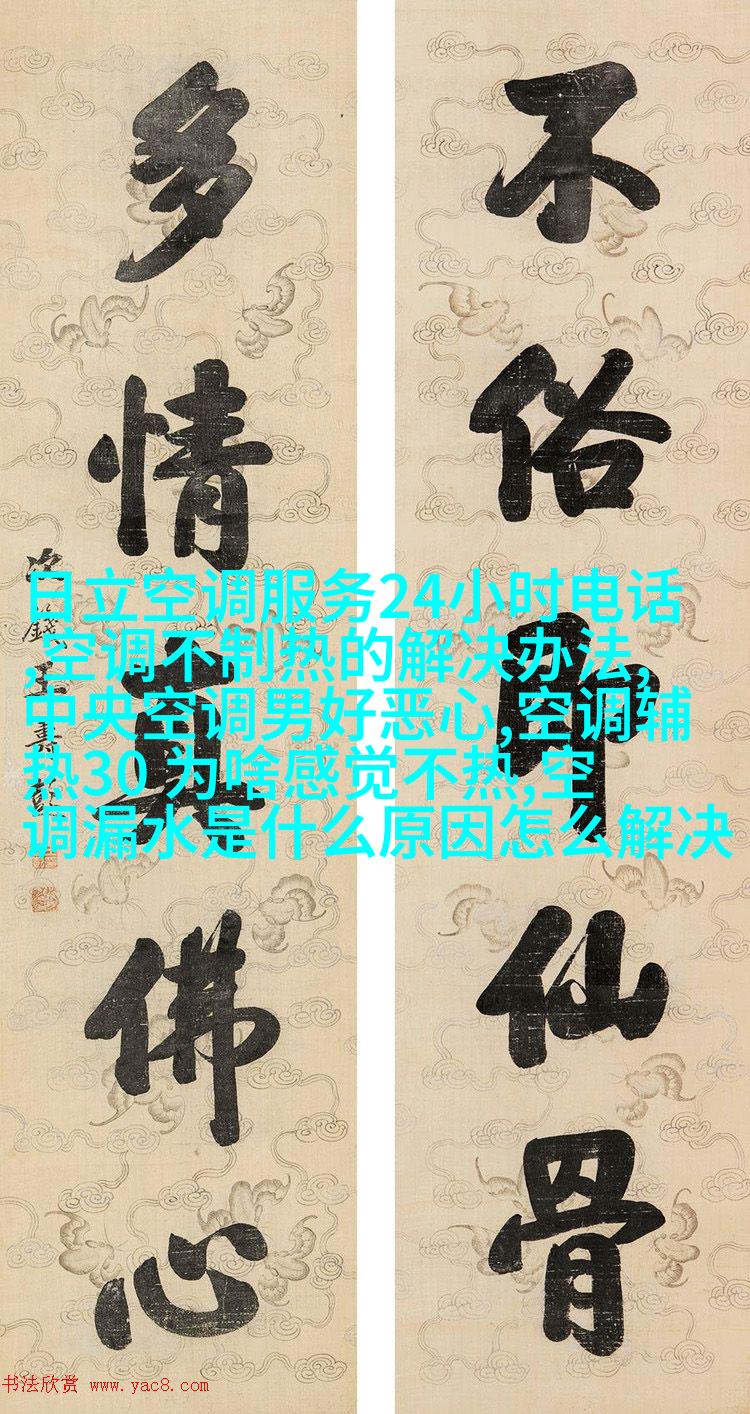 不俗即仙骨
多情真佛心
次籛王壽彭
日立空调服务24小时电话
,空调不制热的解决办法,
中央空调男好恶心,空调辅
热30 为啥感觉不热,空
调漏水是什么原因怎么解决
书法欣赏 www.yac8.com